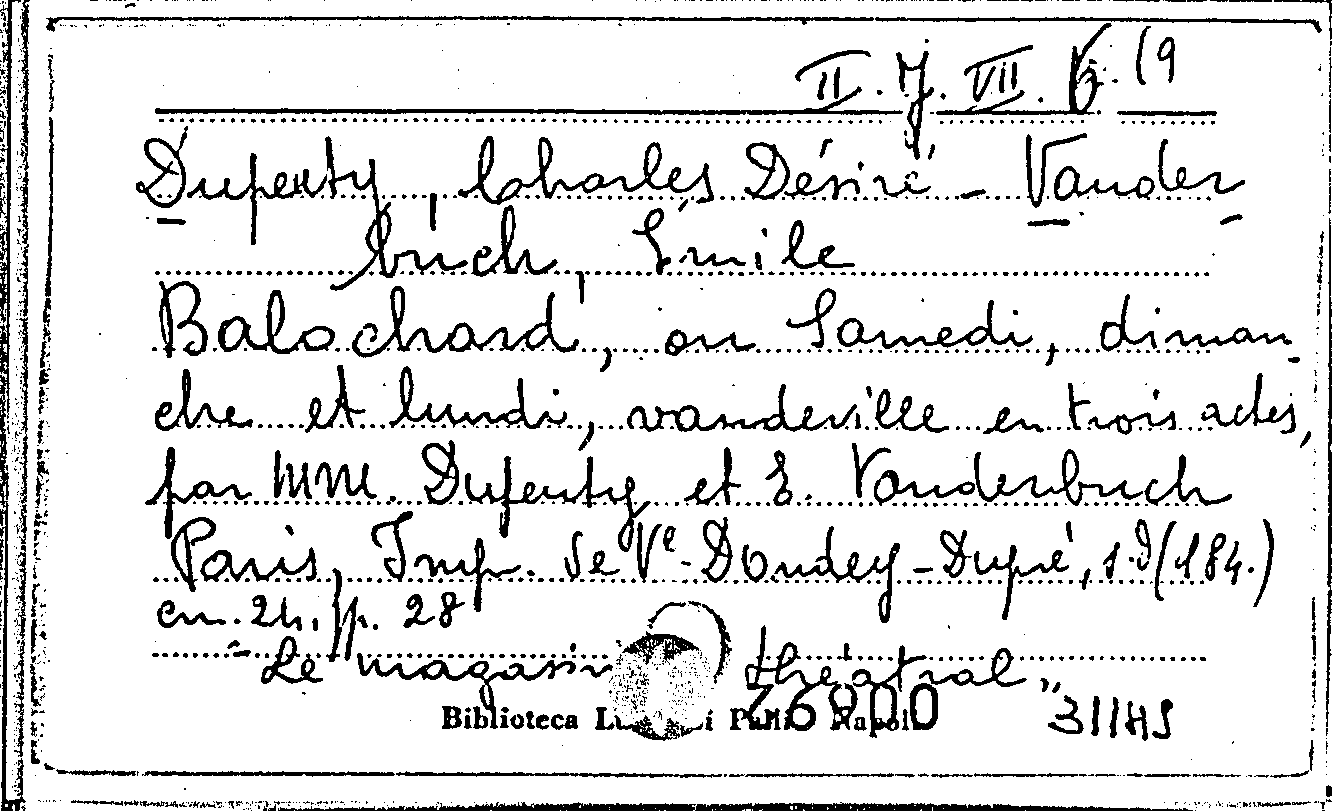 II. J. VII. 6. 19
Dupeuty, Charles Désiré - Vander-
buch, Émile
Balochard, ou Samedi, diman-
che et lundi, vaudeville en trois actes,
par MM. Dupeuty et E. Vanderbuch
Paris, Imp. de Vᵉ. Dondey-Dupré, s.d (184.)
cm. 24. pp. 28
"Le magasin théâtral"
Biblioteca Napoli
31145